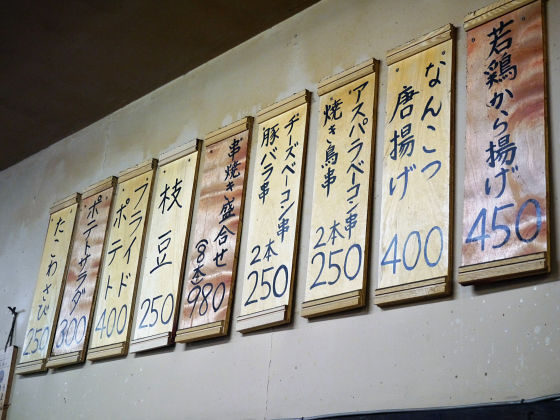 若鶏から揚げ
450
なんこつ
唐揚げ
400
アスパラベーコン串
焼き鳥串
2本
250
チーズベーコン串
豚バラ串
2本
250
串焼き盛合せ
(8本)
980
枝豆
250
フライド
ポテト
400
ポテトサラダ
300
たこわさび
250